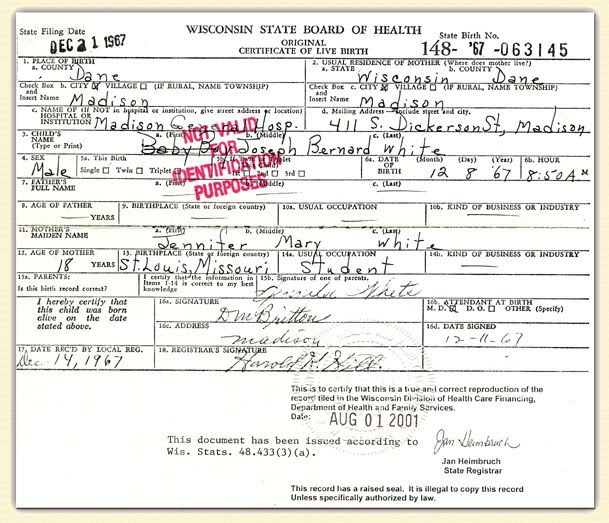 State Filing Date
DEC 21 1967
WISCONSIN STATE BOARD OF HEALTH
ORIGINAL
CERTIFICATE OF LIVE BIRTH
State Birth No.
148- '67 -063145
1. PLACE OF BIRTH
a. COUNTY
Dane
2. USUAL RESIDENCE OF MOTHER (Where does mother live?)
a. STATE b. COUNTY
Wisconsin Dane
Check Box and Insert Name b. CITY VILLAGE (IF RURAL, NAME TOWNSHIP)
Madison
Check Box and Insert Name c. CITY VILLAGE (IF RURAL, NAME TOWNSHIP)
Madison
c. NAME OF (If NOT in hospital or institution, give street address or location)
HOSPITAL OR
INSTITUTION
Madison General Hosp.
d. Mailing Address—Include street and city.
411 S. Dickerson St, Madison
3. CHILD'S
NAME
(Type or Print)
a. (First) b. (Middle) c. (Last)
Baby Boy Joseph Bernard White
NOT VALID
FOR
IDENTIFICATION
PURPOSES
4. SEX
Male
5a. This Birth
Single Twin Triplet
5b. If Twin or Triplet
1st 2nd 3rd
6a. DATE
OF
BIRTH
(Month) (Day) (Year)
12 8 '67
6b. HOUR
8:50 A.M
7. FATHER'S
FULL NAME
a. (First) b. (Middle) c. (Last)
8. AGE OF FATHER
YEARS
9. BIRTHPLACE (State or foreign country)
10a. USUAL OCCUPATION
10b. KIND OF BUSINESS OR INDUSTRY
11. MOTHER'S
MAIDEN NAME
a. (First) b. (Middle) c. (Last)
Jennifer Mary White
12. AGE OF MOTHER
18 YEARS
13. BIRTHPLACE (State or foreign country)
St. Louis, Missouri
14a. USUAL OCCUPATION
Student
14b. KIND OF BUSINESS OR INDUSTRY
15a. PARENTS:
Is this birth record correct?
I certify that the information in
Items 1-14 is correct to my best
knowledge
15b. Signature of one of parents.
Jennifer White
I hereby certify that
this child was born
alive on the date
stated above.
16a. SIGNATURE
DW Britton
16b. ATTENDANT AT BIRTH
M. D. D. O. OTHER (Specify)
16c. ADDRESS
Madison
16d. DATE SIGNED
12-11-67
17. DATE REC'D BY LOCAL REG.
Dec. 14, 1967
18. REGISTRAR'S SIGNATURE
Harold K. Hill.
This is to certify that this is a true and correct reproduction of the
record filed in the Wisconsin Division of Health Care Financing,
Department of Health and Family Services.
Date: AUG 01 2001
This document has been issued according to
Wis. Stats. 48.433(3)(a).
Jan Heimbruch
Jan Heimbruch
State Registrar
This record has a raised seal. It is illegal to copy this record
Unless specifically authorized by law.